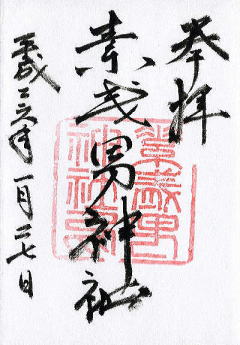 奉拝
素戔男神社
平成二六年一月二七日